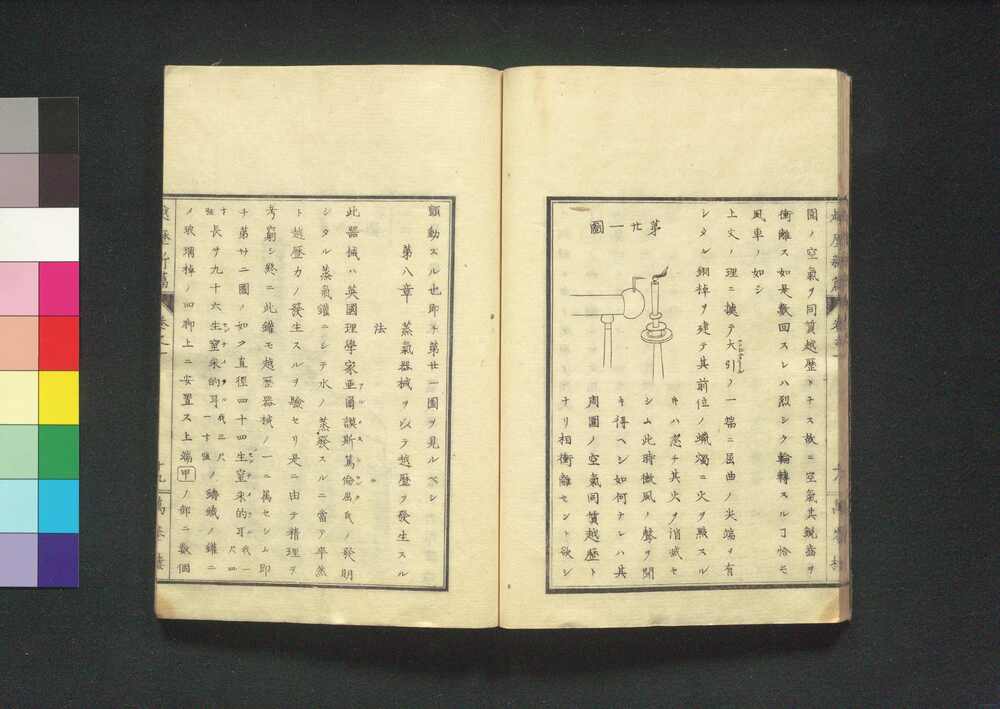 圍ノ空氣ヲ同質越歴トナス故ニ空氣其鋭齒ヲ
衝離ス如是數回スレハ烈シク輪轉スルヿ恰モ
風車ノ如シ
上文ノ理ニ據テ大引ノ一端ニ屈曲ノ尖端ヲ有
シタル銅棹ヲ建テ其前位ノ蝋燭ニ火ヲ點スル
キハ忽チ其火ヲ消滅セ
シム此時微風ノ聲ヲ聞
キ得ヘシ如何ナレハ其
周圍ノ空氣同質越歴ト
ナリ相衝離セント欲シ
第廿一圖
顫動スル也即チ第廿一圖ヲ見ルベシ
第八章 蒸氣器械ヲ以テ越歴ヲ發生スル
法
此器械ハ英國理學家亜爾謨斯篤倫屈氏ノ發明
シタル蒸氣鑵ニシテ水ノ蒸發スルニ當テ卒然
ト越歴力ノ發生スルヲ驗セリ是ニ由テ精理ヲ
考窮シ終ニ此鑵モ越歴器械ノ一ニ萬セシム即
チ第廿二圖ノ如ク直徑四十四生窒米的耳我一尺四
寸強長サ九十六生窒米的耳我三尺一寸強ノ鑄鐵ノ鑵ニ
ノ玻璃棹ノ四脚上ニ安置ス上端甲ノ部ニ數個